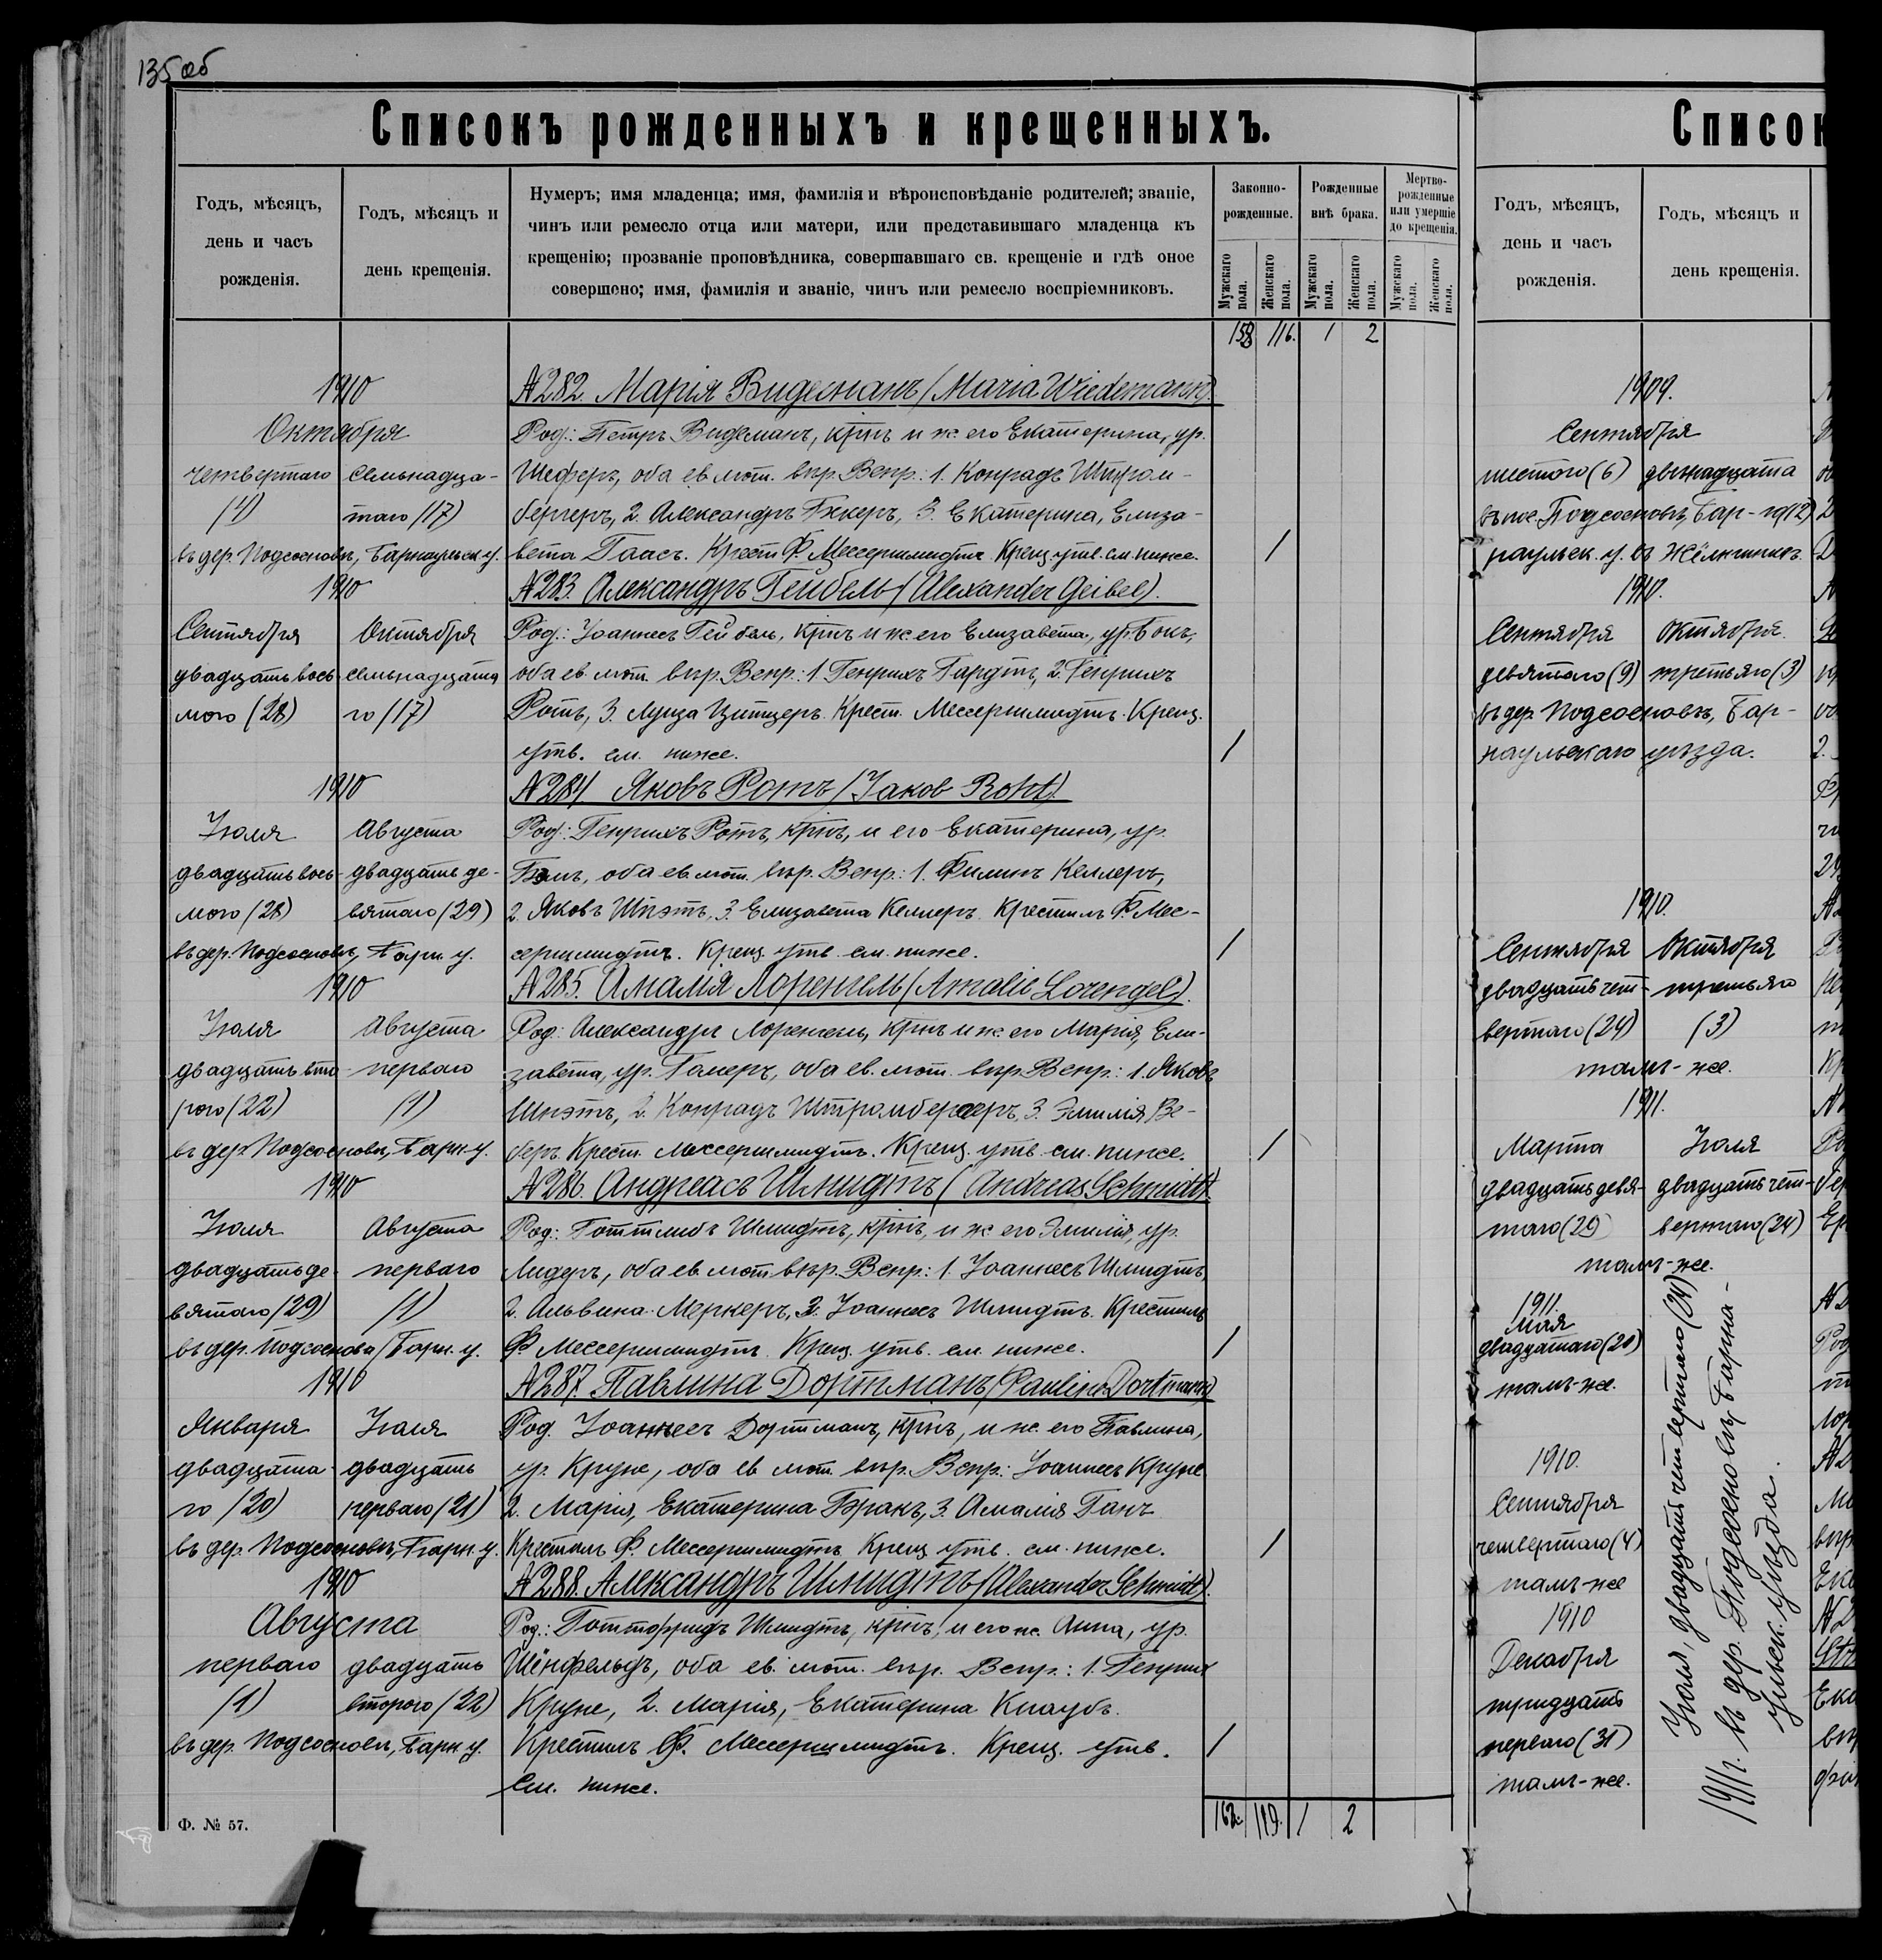 135 об
Списокъ рожденныхъ и крещенныхъ.
Годъ, мѣсяцъ,
день и часъ
рожденія.
Годъ, мѣсяцъ и
день крещенія.
Нумеръ; имя младенца; имя, фамилія и вѣроисповѣданіе родителей; званіе,
чинъ или ремесло отца или матери, или представившаго младенца къ
крещенію; прозваніе проповѣдника, совершавшаго св. крещеніе и гдѣ оное
совершено; имя, фамилія и званіе, чинъ или ремесло воспріемниковъ.
Законно-
рожденные.
Рожденные
внѣ брака.
Мертво-
рожденные
или умершіе
до крещенія.
Мужскаго пола.
Женскаго пола.
Мужскаго пола.
Женскаго пола.
Мужскаго пола.
Женскаго пола.
158 116. 1 2
1910
Октября
четвертаго
(4)
семьнадца-
таго (17)
въ дер. Подсосновъ, Барнаульск. у.
№282. Марія Видеманъ (Maria Wiedemann).
Род.: Петръ Видеманъ, крнъ и ж. его Екатерина, ур.
Шеферъ, оба ев. лют. вѣр. Вспр.: 1. Конрадъ Штром-
бергеръ, 2. Александръ Бекеръ, 3. Екатерина, Елиза-
вета Гаасъ. Крест. Ф. Мессершмидтъ. Крещ. утв. см. ниже.
/
1910
Сентября
двадцать вось-
мого (28)
Октября
семьнадцата
го (17)
№283. Александръ Гейбель (Alexander Geibel).
Род.: Іоаннесъ Гейбель, крнъ и ж его Елизавета, ур. Бокъ,
оба ев. лют. вѣр. Вспр.: 1. Генрихъ Гардтъ, 2. Генрихъ
Ротъ, 3. Луиза Цитцеръ. Крест. Мессершмидтъ. Крещ.
утв. см. ниже.
/
1910
Іюля
двадцать вось-
мого (28)
Августа
двадцать де-
вятаго (29)
въ дер. Подсосновъ, Барн. у.
№284 Яковъ Ротъ (Jakob Roht).
Род.: Генрихъ Ротъ, крнъ, и его Екатерина, ур.
оба ев. лют. вѣр. Вспр.: 1. Филипъ Келлеръ,
2. Яковъ Шпэтъ, 3. Елизавета Келлеръ. Крестилъ Ф. Мес-
сершмидтъ. Крещ. утв. см. ниже.
/
1910
Іюля
двадцать вто-
рого (22)
Августа
перваго
(1)
въ дер. Подсосновъ, Барн. у.
№285. Амалія Лоренгель (Amalie Lorengel).
Род: Александръ Лоренгель, крнъ и ж. его Марія, Ели-
завета, ур. оба ев. лют. вѣр. Вспр.: 1. Яковъ
Шпэтъ, 2. Конрадъ Штромбергеръ, 3. Эмилія Ве-
беръ. Крест. Мессершмидтъ. Крещ. утв. см. ниже.
/
1910
Іюля
двадцать де-
вятаго (29)
Августа
перваго
(1)
въ дер. Подсоснова, Барн. у.
№286. Андреасъ Шмидтъ (Andreas Schmidt).
Род.: Готтлибъ Шмидтъ, крнъ, и ж его Эмилія, ур.
Лидеръ, оба ев. лют. вѣр. Вспр.: 1. Іоаннесъ Шмидтъ,
2. Альвина Меркеръ, 3. Іоаннесъ Шмидтъ. Крестилъ
Ф. Мессершмидтъ. Крещ. утв. см. ниже.
/
1910
Января
двадцата-
го (20)
Іюля
двадцать
перваго (21)
въ дер. Подсосновъ, Барн. у.
№287. Павлина Дортманъ (Pauline Dortmann)
Род. Іоаннесъ Дортманъ, крнъ, и ж. его Павлина,
ур. Крупе, оба ев. лют. вѣр. Вспр: Іоаннесъ Крупе
2. Марія, Екатерина 3. Амалія Ганъ
Крестилъ Ф. Мессершмидтъ Крещ. утв. см. ниже.
/
1910
Августа
перваго
(1)
двадцать
второго (22)
въ дер. Подсосновъ, Барн. у.
№288. Александръ Шмидтъ (Alexander Schmidt).
Род.: Готтофридъ Шмидтъ, крнъ, и его ж. Анна, ур.
Шёнфельдъ, оба ев. лют. вѣр. Вспр.: 1. Генрихъ
Крупе, 2. Марія, Екатерина Кнаубъ.
Крестилъ Ф. Мессершмидтъ. Крещ. утв.
см. ниже.
/
162 119. 1 2
Ф. № 57.
Список
Годъ, мѣсяцъ,
день и часъ
рожденія.
Годъ, мѣсяцъ и
день крещенія.
1909.
Сентября
шестого (6) двѣнадцата
въ пос. Подсосновъ, Бар- го (12)
наульск. у.
1910.
Сентября Октября
девятаго (9) третьяго (3)
въ дер. Подсосновъ, Бар-
наульскаго уѣзда.
1910.
Сентября Октября
двадцать чет- третьяго
вертаго (24) (3)
тамъ-же.
1911.
Марта Іюля
двадцать девя- двадцать чет-
таго (29) вертаго (24)
тамъ-же.
1911.
Мая
двадцатаго (20)
тамъ-же.
1910.
Сентября
четвертаго (4)
тамъ-же
1910
Декабря
тридцать
перваго (31)
тамъ-же.
Іюля, двадцать четвертаго (24)
1911г. въ дер. Подсосновъ, Барна-
ульск. уѣзда.